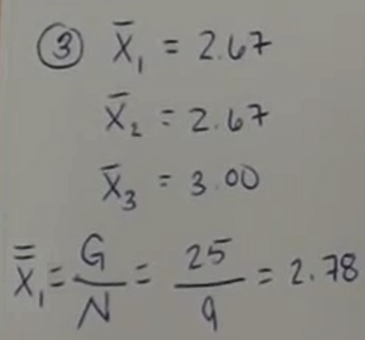 ③ X̄₁ = 2.67
X̄₂ = 2.67
X̄₃ = 3.00
X̿₁ = G/N = 25/9 = 2.78